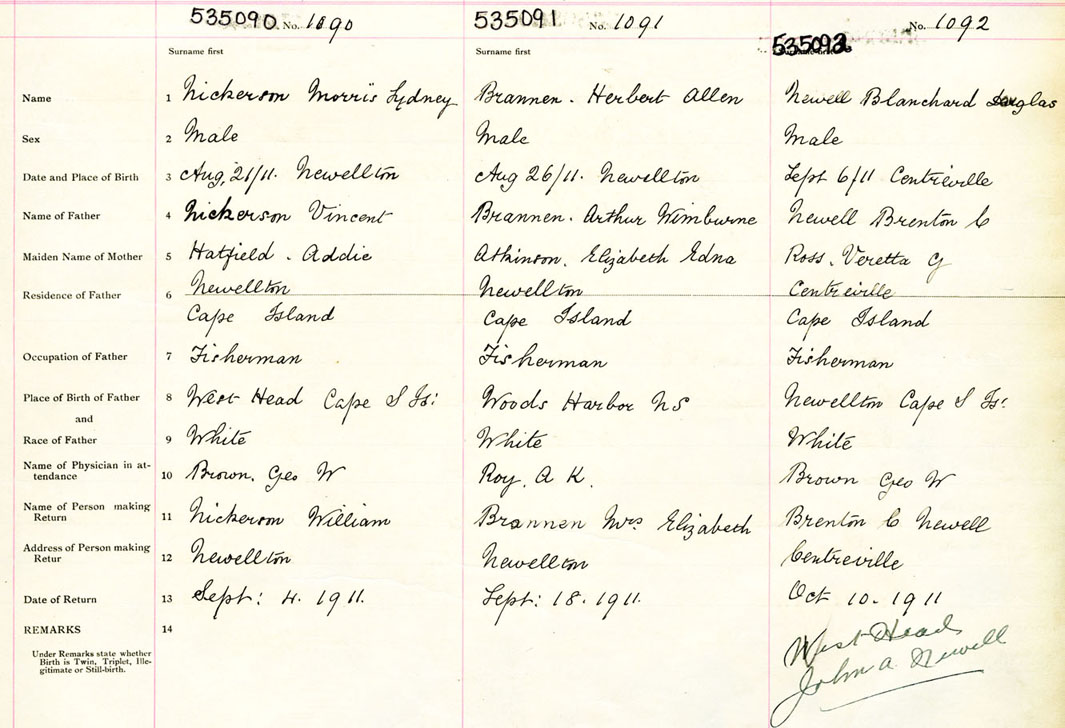 535090 No. 1090 535091 No. 1091 535092 No. 1092
Surname first Surname first Surname first
Name 1 Nickerson Morris Sydney Brannen. Herbert Allen Newell Blanchard Douglas
Sex 2 Male Male Male
Date and Place of Birth 3 Aug. 21/11. Newellton Aug 26/11. Newellton Sept 6/11 Centreville
Name of Father 4 Nickerson Vincent Brannen. Arthur Wimburne Newell Brenton C
Maiden Name of Mother 5 Hatfield. Addie Atkinson. Elizabeth Edna Ross. Veretta G
Residence of Father 6 Newellton Newellton Centreville
Cape Island Cape Island Cape Island
Occupation of Father 7 Fisherman Fisherman Fisherman
Place of Birth of Father 8 West Head Cape S Is: Woods Harbor NS Newellton Cape S Is:
and
Race of Father 9 White White White
Name of Physician in at-
tendance 10 Brown. Geo W Roy. A K. Brown Geo W
Name of Person making
Return 11 Nickerson William Brannen Mrs Elizabeth Brenton C Newell
Address of Person making
Retur 12 Newellton Newellton Centreville
Date of Return 13 Sept: 4. 1911. Sept: 18. 1911. Oct 10. 1911
REMARKS 14
West Head
John A. Newell
Under Remarks state whether
Birth is Twin, Triplet, Ille-
gitimate or Still-birth.